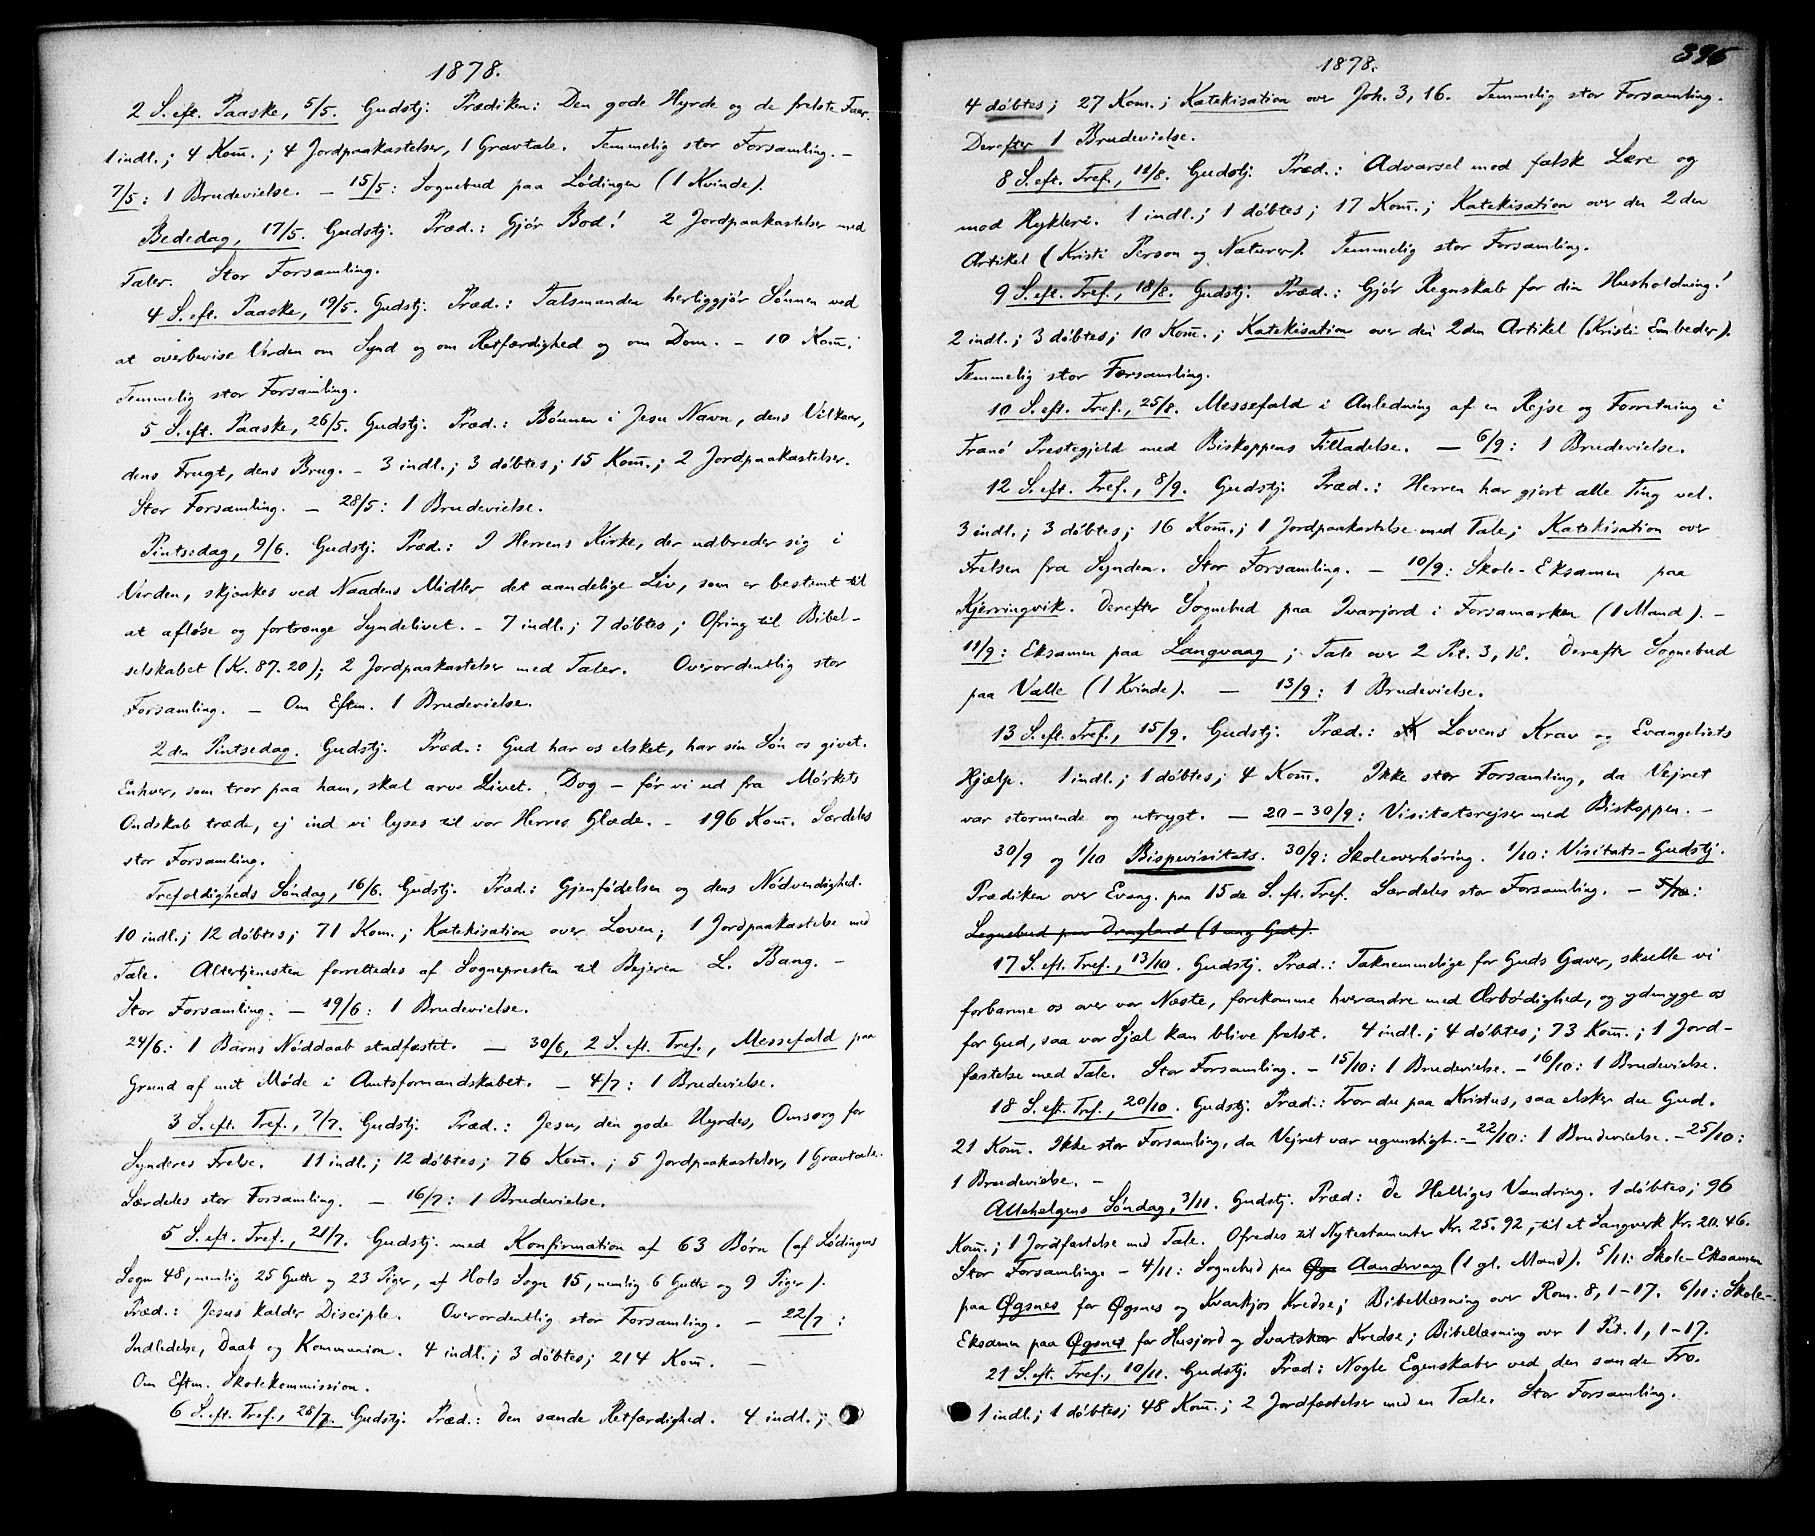 1878.
2 S. eft. Paaske, 5/5. Gudstj. Prædiken: Den gode Hyrde og de frelste Faar.
1 indl.; 4 Kom̄.; 4 Jordpaakastelser, 1 Gravtale. Temmelig stor Forsamling. –
7/5: 1 Brudevielse. – 15/5: Sognebud paa Lødingen (1 Kvinde).
Bededag, 17/5. Gudstj. Præd.: Gjør Bod! 2 Jordpaakastelser med
Taler. Stor Forsamling.
4 S. eft. Paaske, 19/5. Gudstj. Præd.: Talsmanden herliggjør Sønnen ved
at overbevise Verden om Synd og om Retfærdighed og om Dom. – 10 Kom̄.
Temmelig stor Forsamling.
5 S. eft. Paaske, 26/5. Gudstj. Præd.: Bønnen i Jesu Navn, dens Vilkaar,
dens Frugt, dens Brug. – 3 indl.; 3 døbtes; 15 Kom̄.; 2 Jordpaakastelser.
Stor Forsamling. – 28/5: 1 Brudevielse.
Pintsedag, 9/6. Gudstj. Præd.: I Herrens Kirke, der udbreder sig i
Verden, skjænkes ved Naadens Midler det aandelige Liv, som er bestemt til
at afløse og fortrænge Syndelivet. – 7 indl.; 7 døbtes; Ofring til Bibel-
selskabet (Kr. 87.20); 2 Jordpaakastelser med Taler. Overordentlig stor
Forsamling. – Om Eftm. 1 Brudevielse.
2den Pintsedag. Gudstj. Præd.: Gud har os elsket, har sin Søn os givet.
Enhver, som tror paa ham, skal arve Livet. Dog – før vi ud fra Mørkets
Ondskab træde, ej ind vi lyses til vor Herres Glæde. – 196 Kom̄. Særdeles
stor Forsamling.
Trefoldigheds Søndag, 16/6. Gudstj. Præd.: Gjenfødelsen og dens Nødvendighed.
10 indl.; 12 døbtes; 71 Kom.; Katekisation over Loven; 1 Jordpaakastelse med
Tale. Altertjenesten forrettedes af Sognepresten til Bejeren L. Bang. –
Stor Forsamling. – 19/6: 1 Brudevielse.
24/6: 1 Barns Nøddaab stadfæstet. – 30/6, 2 S. eft. Tref., Messefald paa
Grund af mit Møde i Amtsformandskabet. – 4/7: 1 Brudevielse.
3 S. eft. Tref., 7/7. Gudstj. Præd.: Jesu, den gode Hyrdes, Omsorg for
Synderes Frelse. 11 indl.; 12 døbtes; 76 Kom̄.; 5 Jordpaakastelser, 1 Gravtale.
Særdeles stor Forsamling. – 16/7: 1 Brudevielse.
5 S. eft. Tref., 21/7. Gudstj. med Konfirmation af 63 Børn (af Lødingens
Sogn 48, nemlig 25 Gutter og 23 Piger, af Hols Sogn 15, nemlig 6 Gutter og 9 Piger).
Præd.: Jesus kalder Disciple. Overordentlig stor Forsamling. – 22/7:
Indledelse, Daab og Kommunion. 4 indl.; 3 døbtes; 214 Kom̄. –
Om Eftm. Skolekommission.
6 S. eft. Tref., 28/7. Gudstj. Præd.: Den sande Retfærdighed. 4 indl.;
1878.
396
4 døbtes; 27 Kom.; Katekisation over Joh. 3, 16. Temmelig stor Forsamling.
Derefter 1 Brudevielse.
8 S. eft. Tref., 11/8. Gudstj. Præd.: Advarsel mod falsk Lære og
mod Hykleri. 1 indl.; 1 døbtes; 17 Kom̄.; Katekisation over den 2den
Artikel (Kristi Person og Naturer). Temmelig stor Forsamling.
9 S. eft. Tref., 18/8. Gudstj. Præd.: Gjør Regnskab for din Husholdning!
2 indl.; 3 døbtes; 10 Kom̄.; Katekisation over den 2den Artikel (Kristi Embeder).
Temmelig stor Forsamling.
10 S. eft. Tref., 25/8. Messefald i Anledning af en Rejse og Forretning i
Tranø Prestegjeld med Biskoppens Tilladelse. – 6/9: 1 Brudevielse.
12 S. eft. Tref., 8/9. Gudstj. Præd.: Herren har gjort alle Ting vel.
3 indl.; 3 døbtes; 16 Kom̄.; 1 Jordpaakastelse med Tale; Katekisation over
Frelsen fra Synden. Stor Forsamling. – 10/9: Skole-Eksamen paa
Kjerringvik. Derefter Sognebud paa Ivarjord i Forsamarken (1 Mand). –
11/9: Eksamen paa Langvaag; Tale over 2 Pet. 3, 18. Derefter Sognebud
paa Valle (1 Kvinde). – 13/9: 1 Brudevielse.
13 S. eft. Tref., 15/9. Gudstj. Præd.: Lovens Krav og Evangeliets
Hjælp. 1 indl.; 1 døbtes; 4 Kom̄. Ikke stor Forsamling, da Vejret
var stormende og utrygt. – 20–30/9: Visitatsrejser med Biskoppen. –
30/9 og 1/10 Bispevisitats. 30/9: Skoleoverhøring. 1/10: Visitats-Gudstj.
Prædiken over Evang. paa 15de S. eft. Tref. Særdeles stor Forsamling. – 5/10:
Sognebud paa Dragland (1 ung Gut).
17 S. eft. Tref., 13/10. Gudstj. Præd.: Taknemmelige for Guds Gaver, skulle vi
forbarme os over vor Næste, forekomme hverandre med Ærbødighed, og ydmyge os
for Gud, saa vor Sjæl kan blive frelst. 4 indl.; 4 døbtes; 73 Kom̄.; 1 Jord-
fæstelse med Tale. Stor Forsamling. – 15/10: 1 Brudevielse. – 16/10: 1 Brudevielse.
18 S. eft. Tref., 20/10. Gudstj. Præd.: Tror du paa Kristus, saa elsker du Gud.
21 Kom̄. Ikke stor Forsamling, da Vejret var ugunstigt. – 22/10: 1 Brudevielse. – 25/10:
1 Brudevielse. –
Allehelgens Søndag, 3/11. Gudstj. Præd.: De Helliges Vandring. 1 døbtes; 96
Kom̄.; 1 Jordfæstelse med Tale. Ofredes til Nytestamenter Kr. 25.92, til et Sangverk Kr. 20.46.
Stor Forsamling. – 4/11: Sognebud paa Øgs Aandervaag (1 gl. Mand). 5/11: Skole-Eksamen
paa Øgsnes for Øgsnes og Kvankjos Kredse; Bibellæsning over Rom. 8, 1–17. 6/11: Skole-
Eksamen paa Øgsnes for Husjord og Svartskar Kredse; Bibellæsning over 1 Pet. 1, 1–17.
21 S. eft. Tref., 10/11. Gudstj. Præd.: Nogle Egenskaber ved den sande Tro.
1 indl.; 1 døbtes; 48 Kom̄.; 2 Jordfæstelser med en Tale. Stor Forsamling.